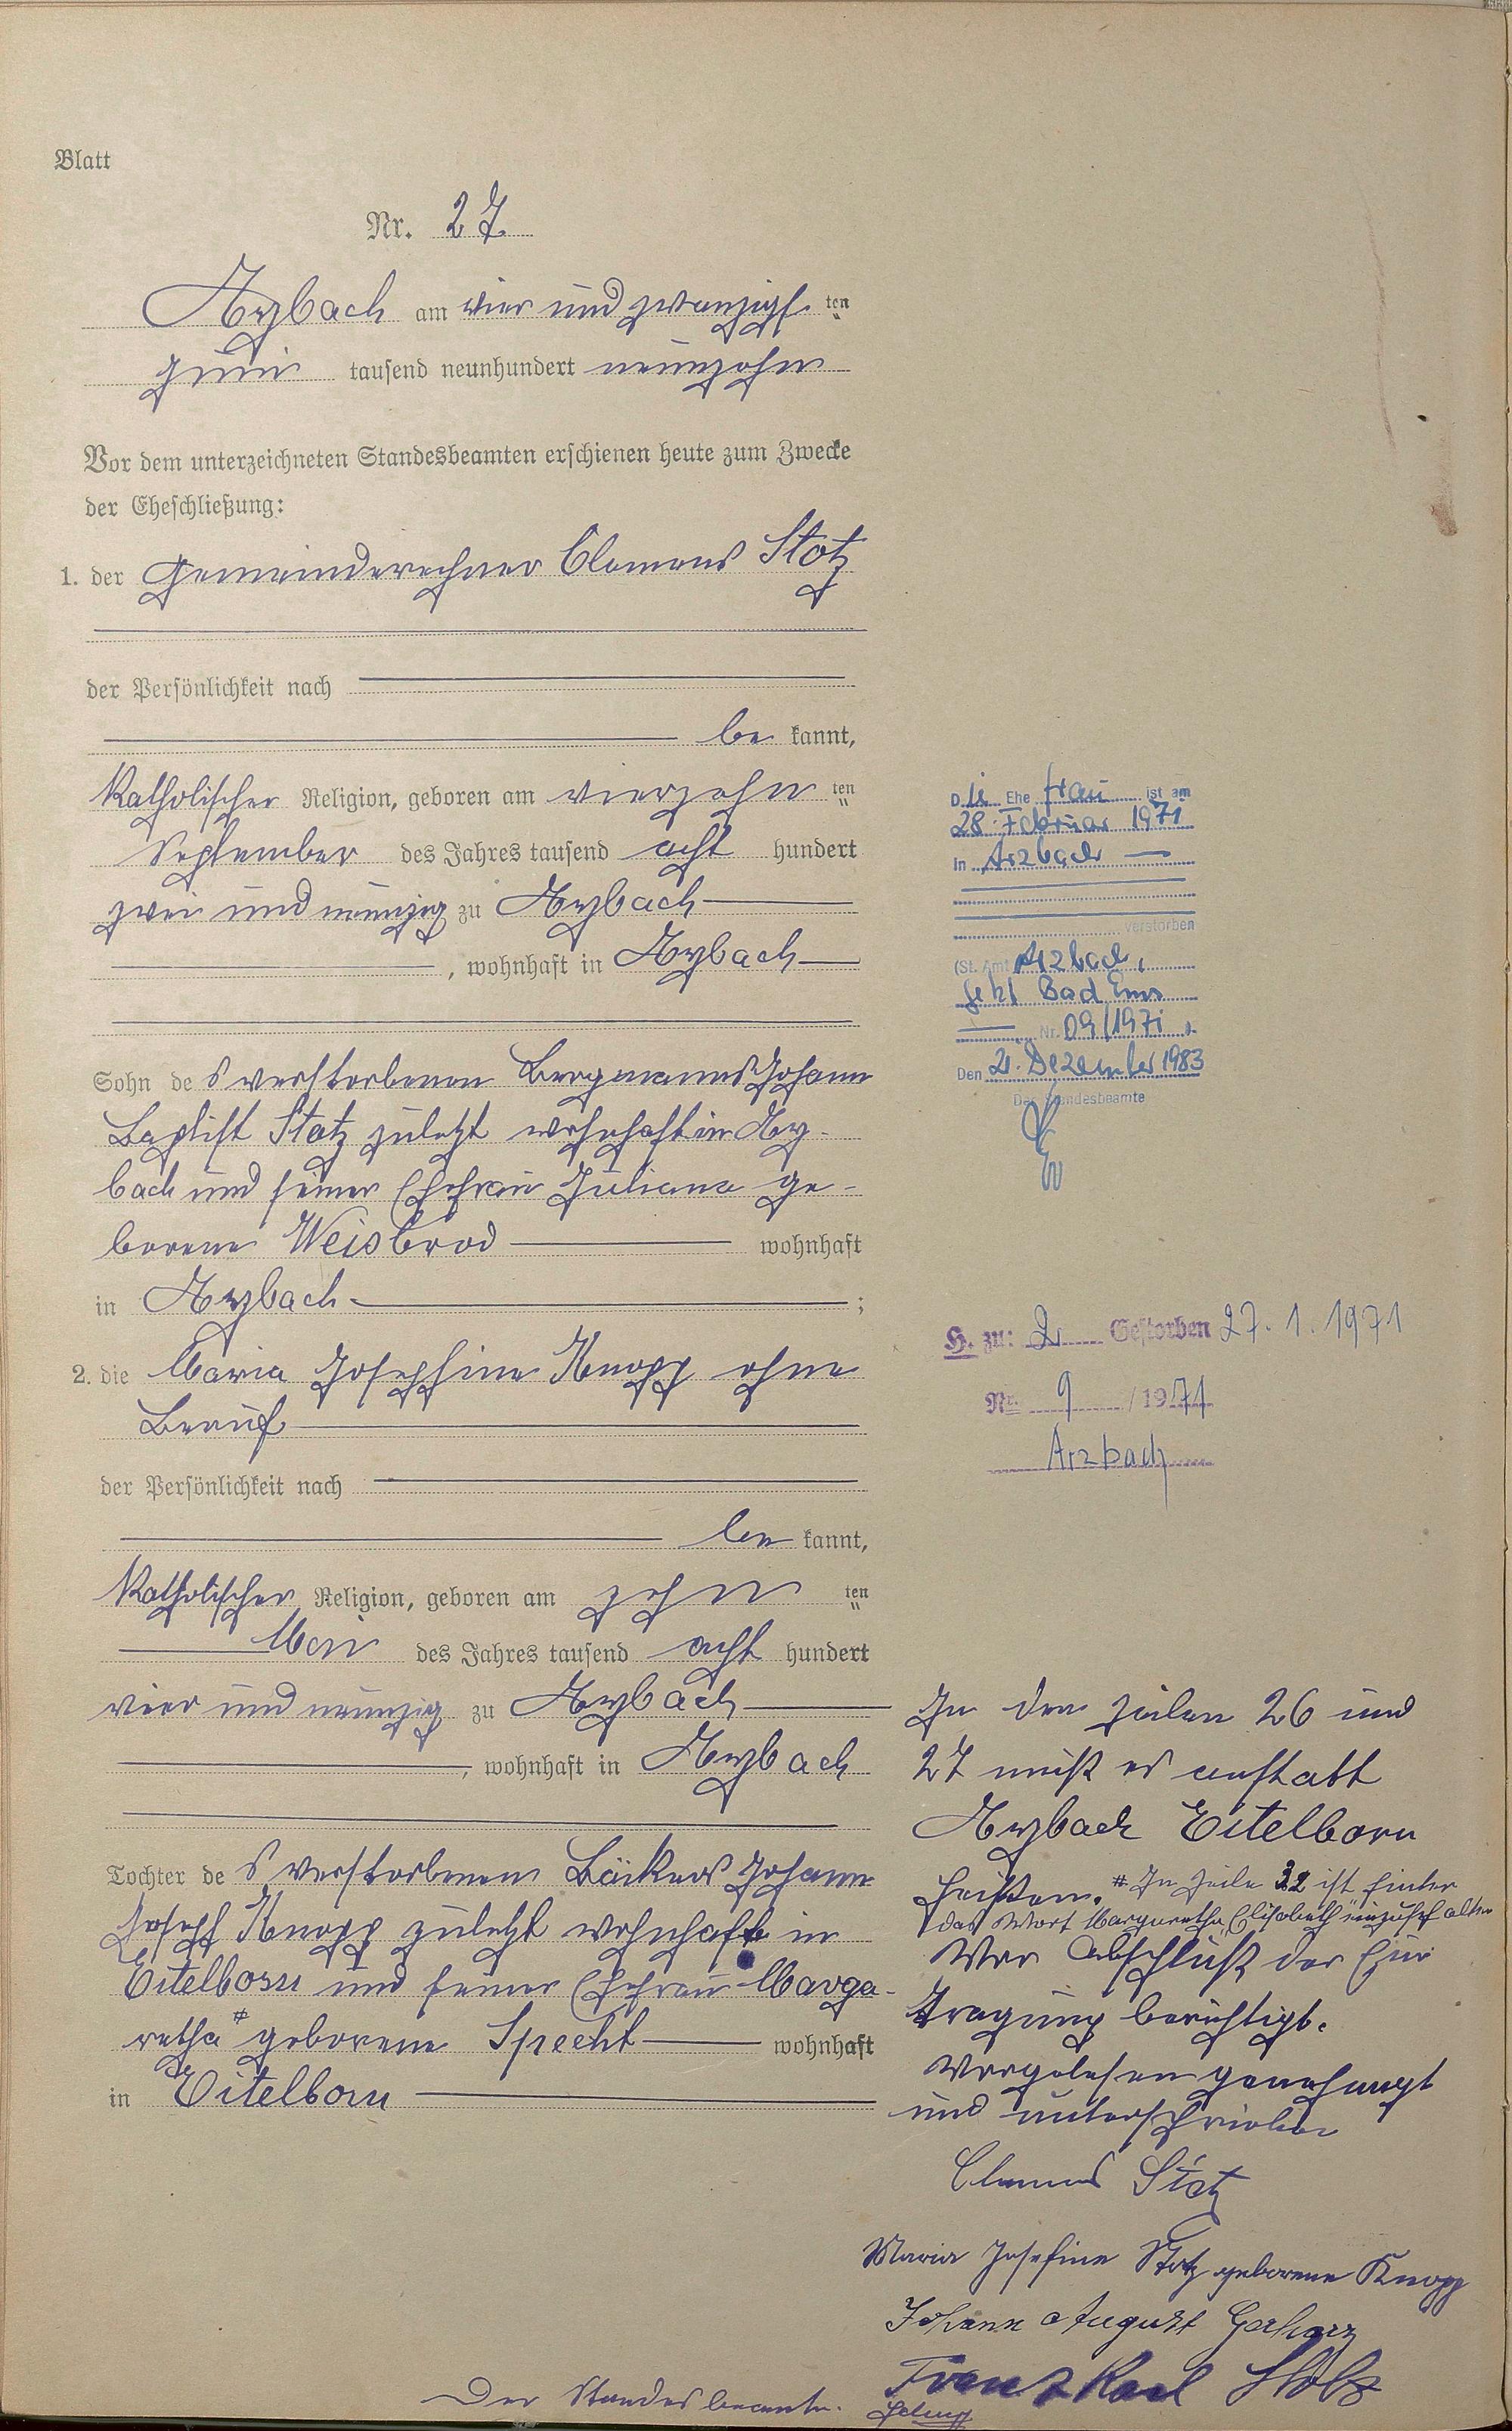 Blatt
Nr. 27.
Arzbach am vier und zwanzigsten
Juni tausend neunhundert neunzehn
Vor dem unterzeichneten Standesbeamten erschienen heute zum Zwecke
der Eheschließung:
1. der Gemeinderechner Clemens Stotz
der Persönlichkeit nach
be kannt,
Katholischer Religion, geboren am vierzehn ten
September des Jahres tausend acht hundert
zwei und neunzig zu Arzbach
, wohnhaft in Arzbach
Sohn des verstorbenen Bergmanns Johann
Baptist Stotz zuletzt wohnhaft in Arz-
bach und seiner Ehefrau Juliana ge-
borene Weisbrod wohnhaft
in Arzbach ;
2. die Maria Josephine Knopp ohne
Beruf
der Persönlichkeit nach
be kannt,
Katholischer Religion, geboren am zehn ten
Mai des Jahres tausend acht hundert
vier und neunzig zu Arzbach
, wohnhaft in Arzbach
Tochter des verstorbenen Bäckers Johann
Joseph Knopp zuletzt wohnhaft in
Eitelborn und seiner Ehefrau Marga-
retha # geborene Specht wohnhaft
in Eitelborn
Die Ehe frau ist am
28. Februar 1971
in Arzbach
verstorben
(St. Amt Arzbach,
jetzt Bad Ems
Nr. 09/1971
Den 21. Dezember 1983
Der Standesbeamte
H. zu: 2 Gestorben 27.1.1971
Nr. 9 / 1971
Arzbach
In den Zeilen 26 und
27 muß es anstatt
Arzbach Eitelborn
heißen. # In Zeile 32 ist hinter
das Wort Margaretha "Elisabeth" einzuschalten
Vor Abschluß der Ein-
tragung berichtigt.
Vorgelesen genehmigt
und unterschrieben
Clemens Stotz
Maria Josefine Stotz geborene Knopp
Johann August Gerharz
Franz Karl
Der Standesbeamte.